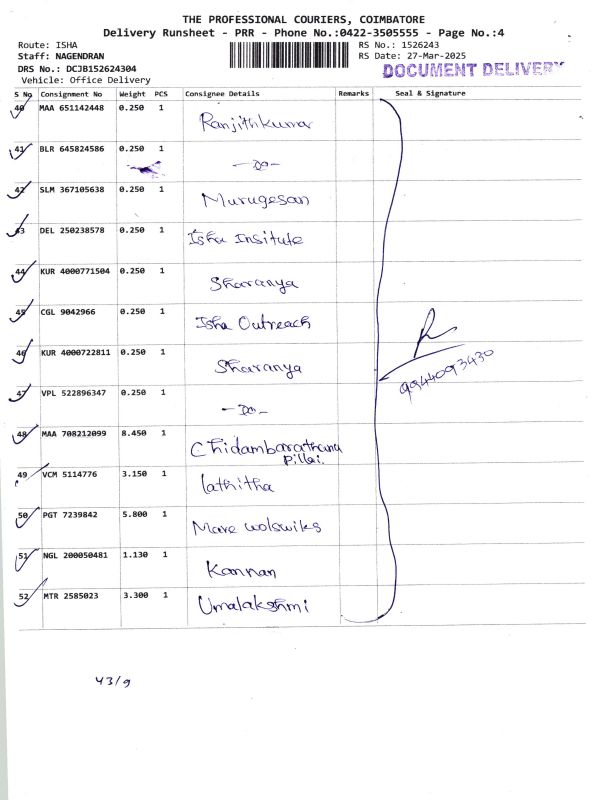 THE PROFESSIONAL COURIERS, COIMBATORE
Delivery Runsheet - PRR - Phone No.:0422-3505555 - Page No.:4
Route: ISHA
RS No.: 1526243
Staff: NAGENDRAN
RS Date: 27-Mar-2025
DRS No.: DCJB152624304
DOCUMENT DELIVERY
Vehicle: Office Delivery
S No Consignment No Weight PCS Consignee Details Remarks Seal & Signature
40 MAA 651142448 0.250 1 Ranjithkumar
41 BLR 645824586 0.250 1 -Do-
42 SLM 367105638 0.250 1 Murugesan
43 DEL 250238578 0.250 1 Isha Insitute
44 KUR 4000771504 0.250 1 Sharanya
45 CGL 9042966 0.250 1 Isha Outreach
46 KUR 4000722811 0.250 1 Sharanya
9944093430
47 VPL 522896347 0.250 1 -Do-
48 MAA 708212099 8.450 1 Chidambarathanu
Pillai.
49 VCM 5114776 3.150 1 lathitha
50 PGT 7239842 5.800 1 Mare
51 NGL 200050481 1.130 1 Kannan
52 MTR 2585023 3.300 1 Umalakshmi
43/9